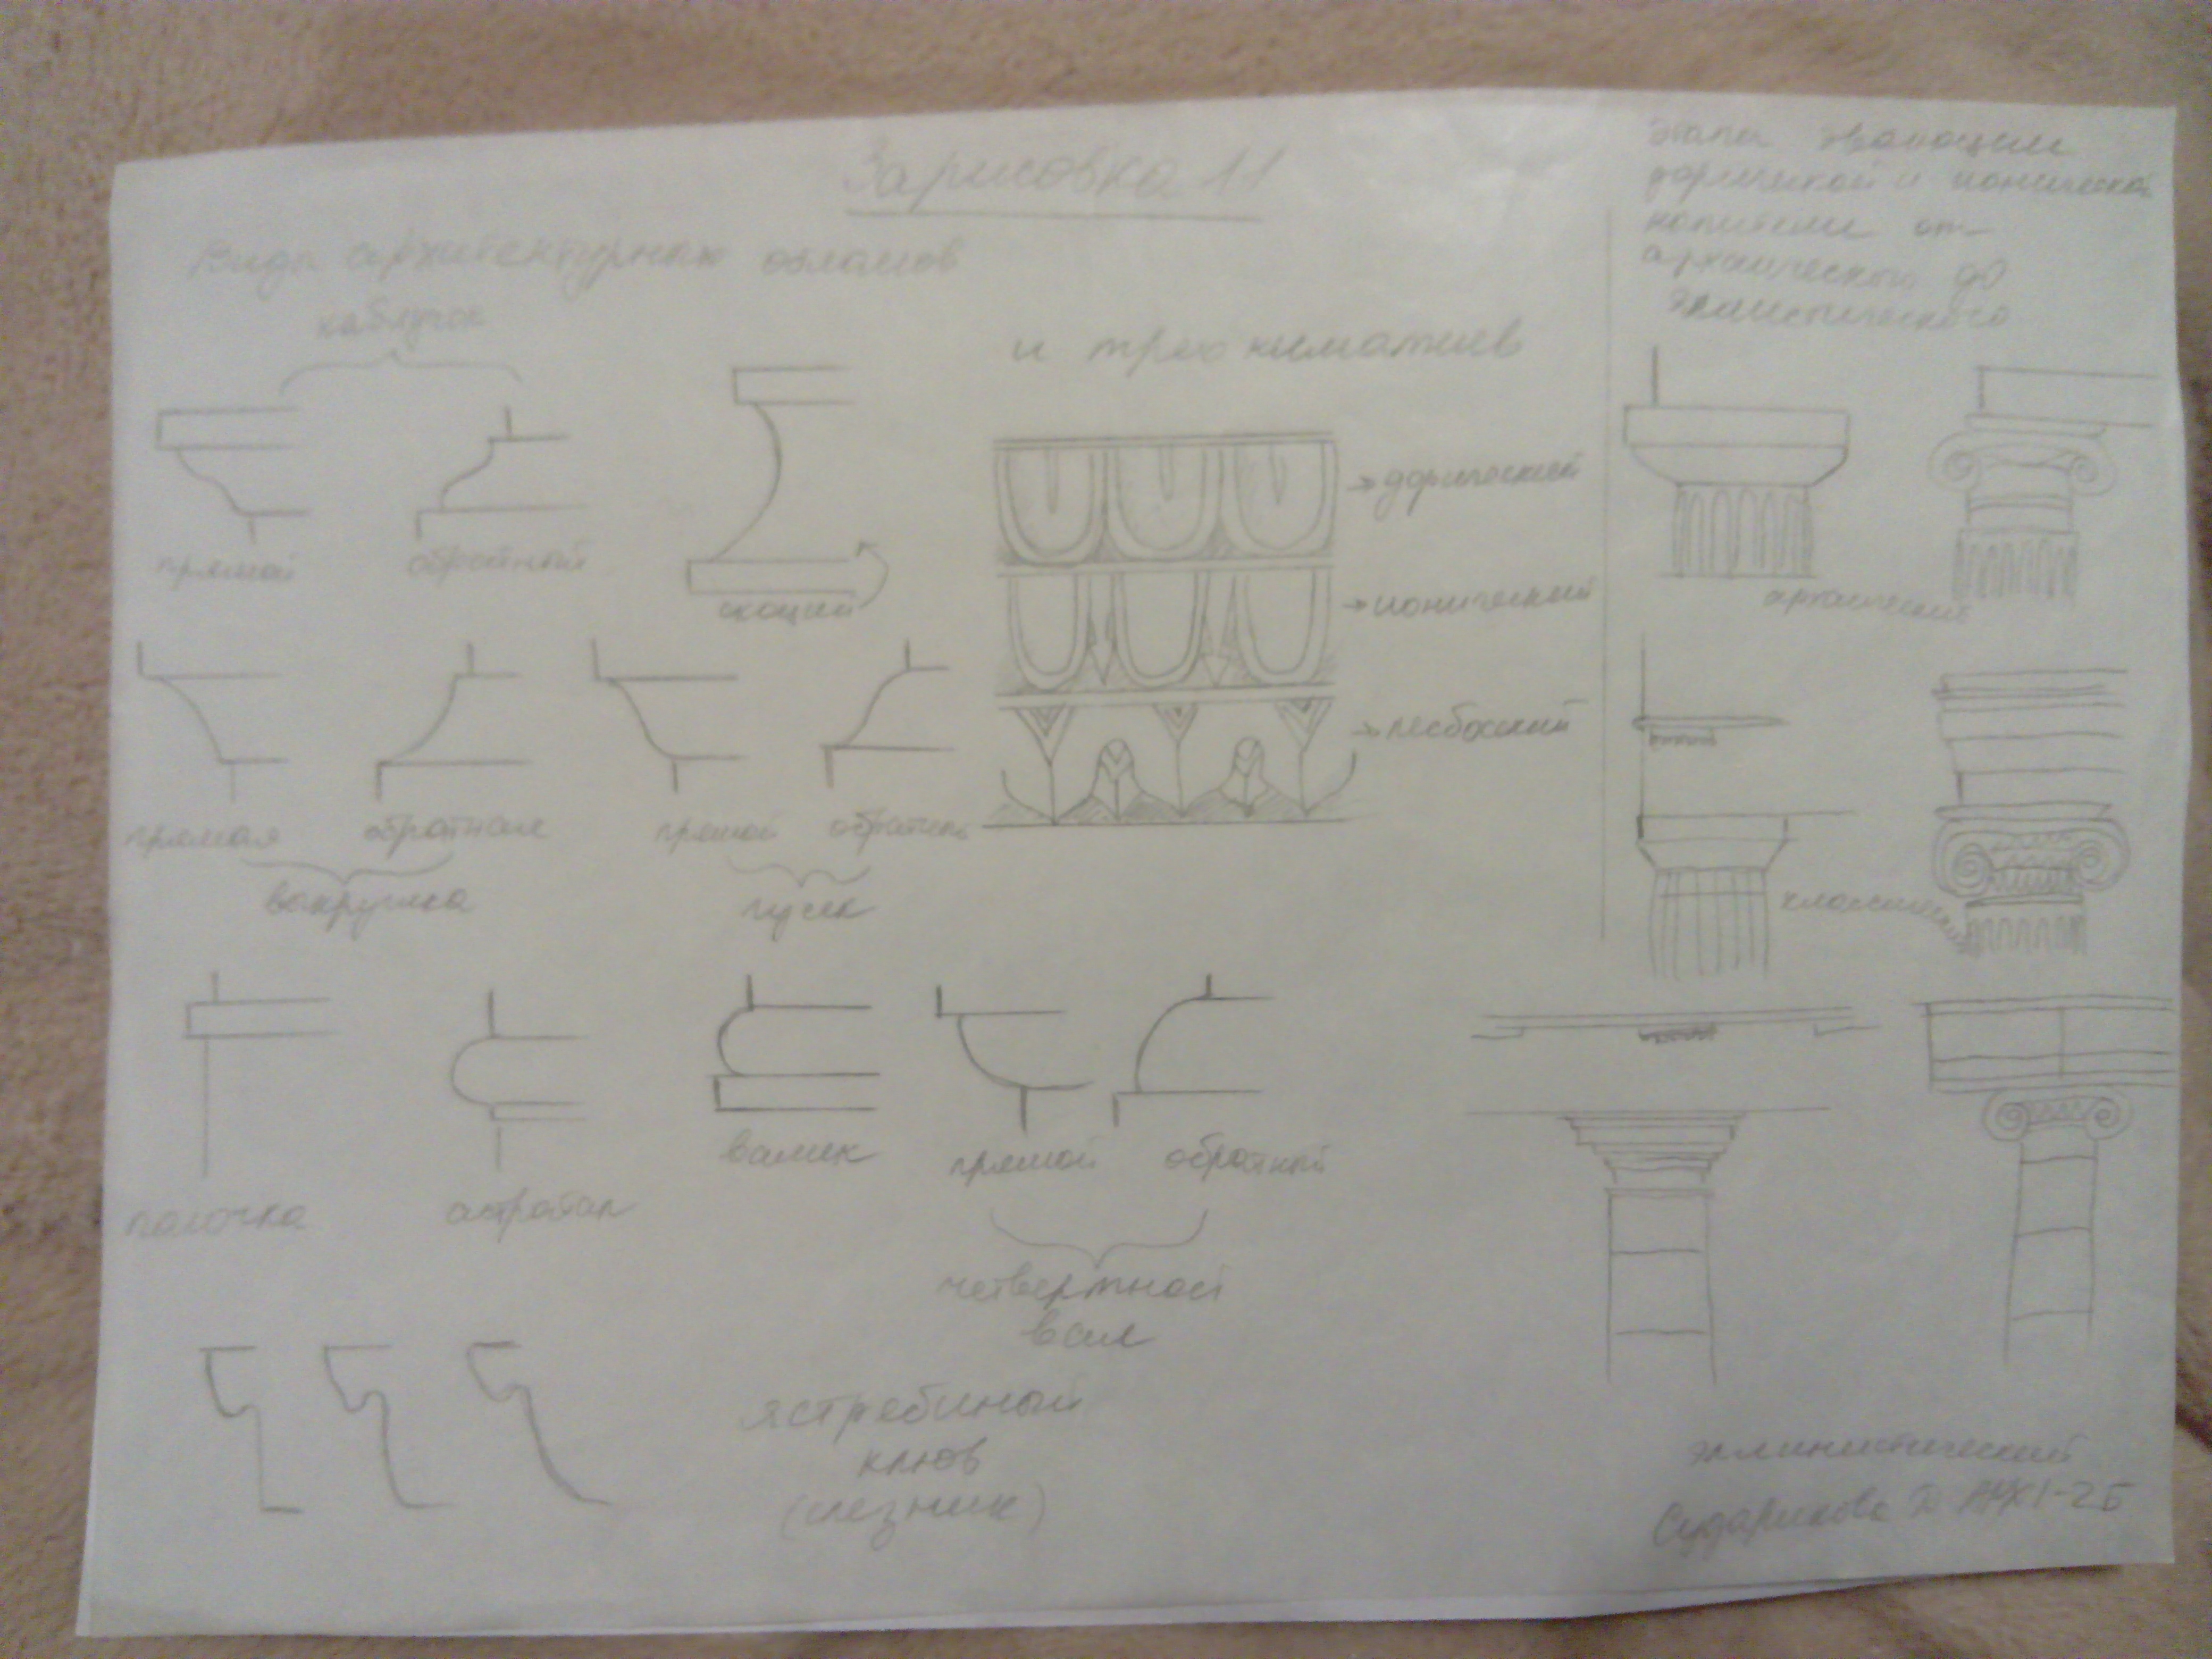 Зарисовка 11
Виды архитектурных обломов
каблучок
и трех киматиев
прямой
обратный
скоций
→ дорический
→ ионический
→ лесбосский
прямая
обратная
прямой
обратный
выкружка
гусёк
полочка
астрагал
валик
прямой
обратный
четвертной
вал
ястребиный
клюв
(слезник)
этапы эволюции
дорической и ионической
капители от
архаической до
эллинистического
архаический
классический
эллинистический
Сударикова